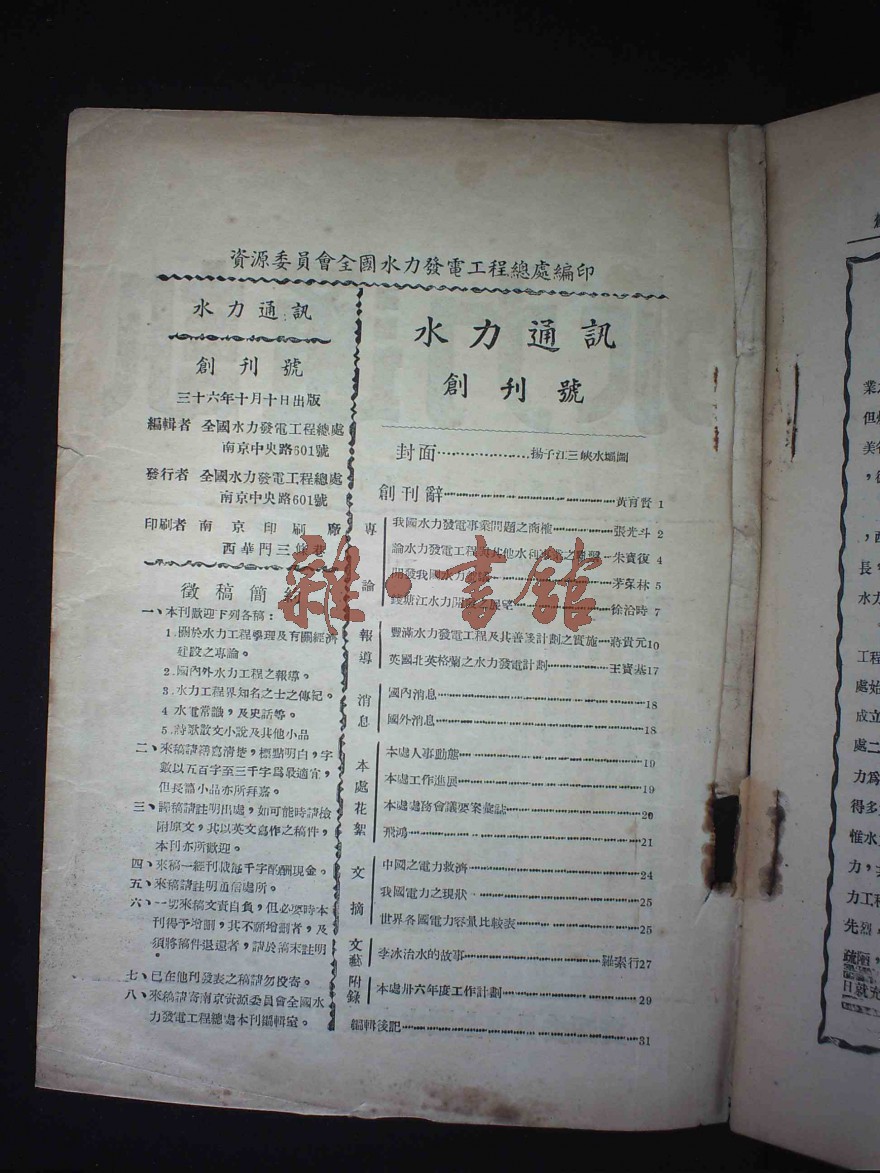 資源委員會全國水力發電工程總處編印
水力通訊
創刊號
三十六年十月十日出版
編輯者 全國水力發電工程總處
南京中央路601號
發行者 全國水力發電工程總處
南京中央路601號
印刷者 南京印刷廠
西華門三條巷
徵稿簡約
一、本刊歡迎下列各稿：
1.關於水力工程學理及有關經濟
建設之專論。
2.國內外水力工程之報導。
3.水力工程界知名之士之傳記。
4 水電常識，及史話等。
5.詩歌散文小說及其他小品
二、來稿請繕寫清楚，標點明白，字
數以五百字至三千字為最適宜，
但長篇小品亦所拜嘉。
三、譯稿請註明出處，如可能時請檢
附原文，其以英文寫作之稿件，
本刊亦所歡迎。
四、來稿一經刊載每千字酌酬現金。
五、來稿請註明通信處所。
六、一切來稿文責自負，但必要時本
刊得予增刪，其不願增刪者，及
須將稿件退還者，請於稿末註明。
七、已在他刊發表之稿請勿投寄。
八、來稿請寄南京資源委員會全國水
力發電工程總處本刊編輯室。
水力通訊
創刊號
封面………………揚子江三峽水壩圖
創刊辭………………黃育賢 1
專論
我國水力發電事業問題之商榷………張光斗 2
論水力發電工程與其他水利事業之聯繫…朱寶復 4
開發我國水力芻議………茅榮林 5
錢塘江水力開發之展望………徐洽時 7
報導
豐滿水力發電工程及其善後計劃之實施…蔣貴元10
英國北英格蘭之水力發電計劃………王寶基17
消息
國內消息………18
國外消息………18
本處花絮
本處人事動態………19
本處工作進展………19
本處處務會議要案彙誌………20
飛鴻………21
文摘
中國之電力救濟………24
我國電力之現狀………25
世界各國電力容量比較表………25
文藝
李冰治水的故事………羅索行27
附錄
本處卅六年度工作計劃………29
編輯後記………31
雜·書館